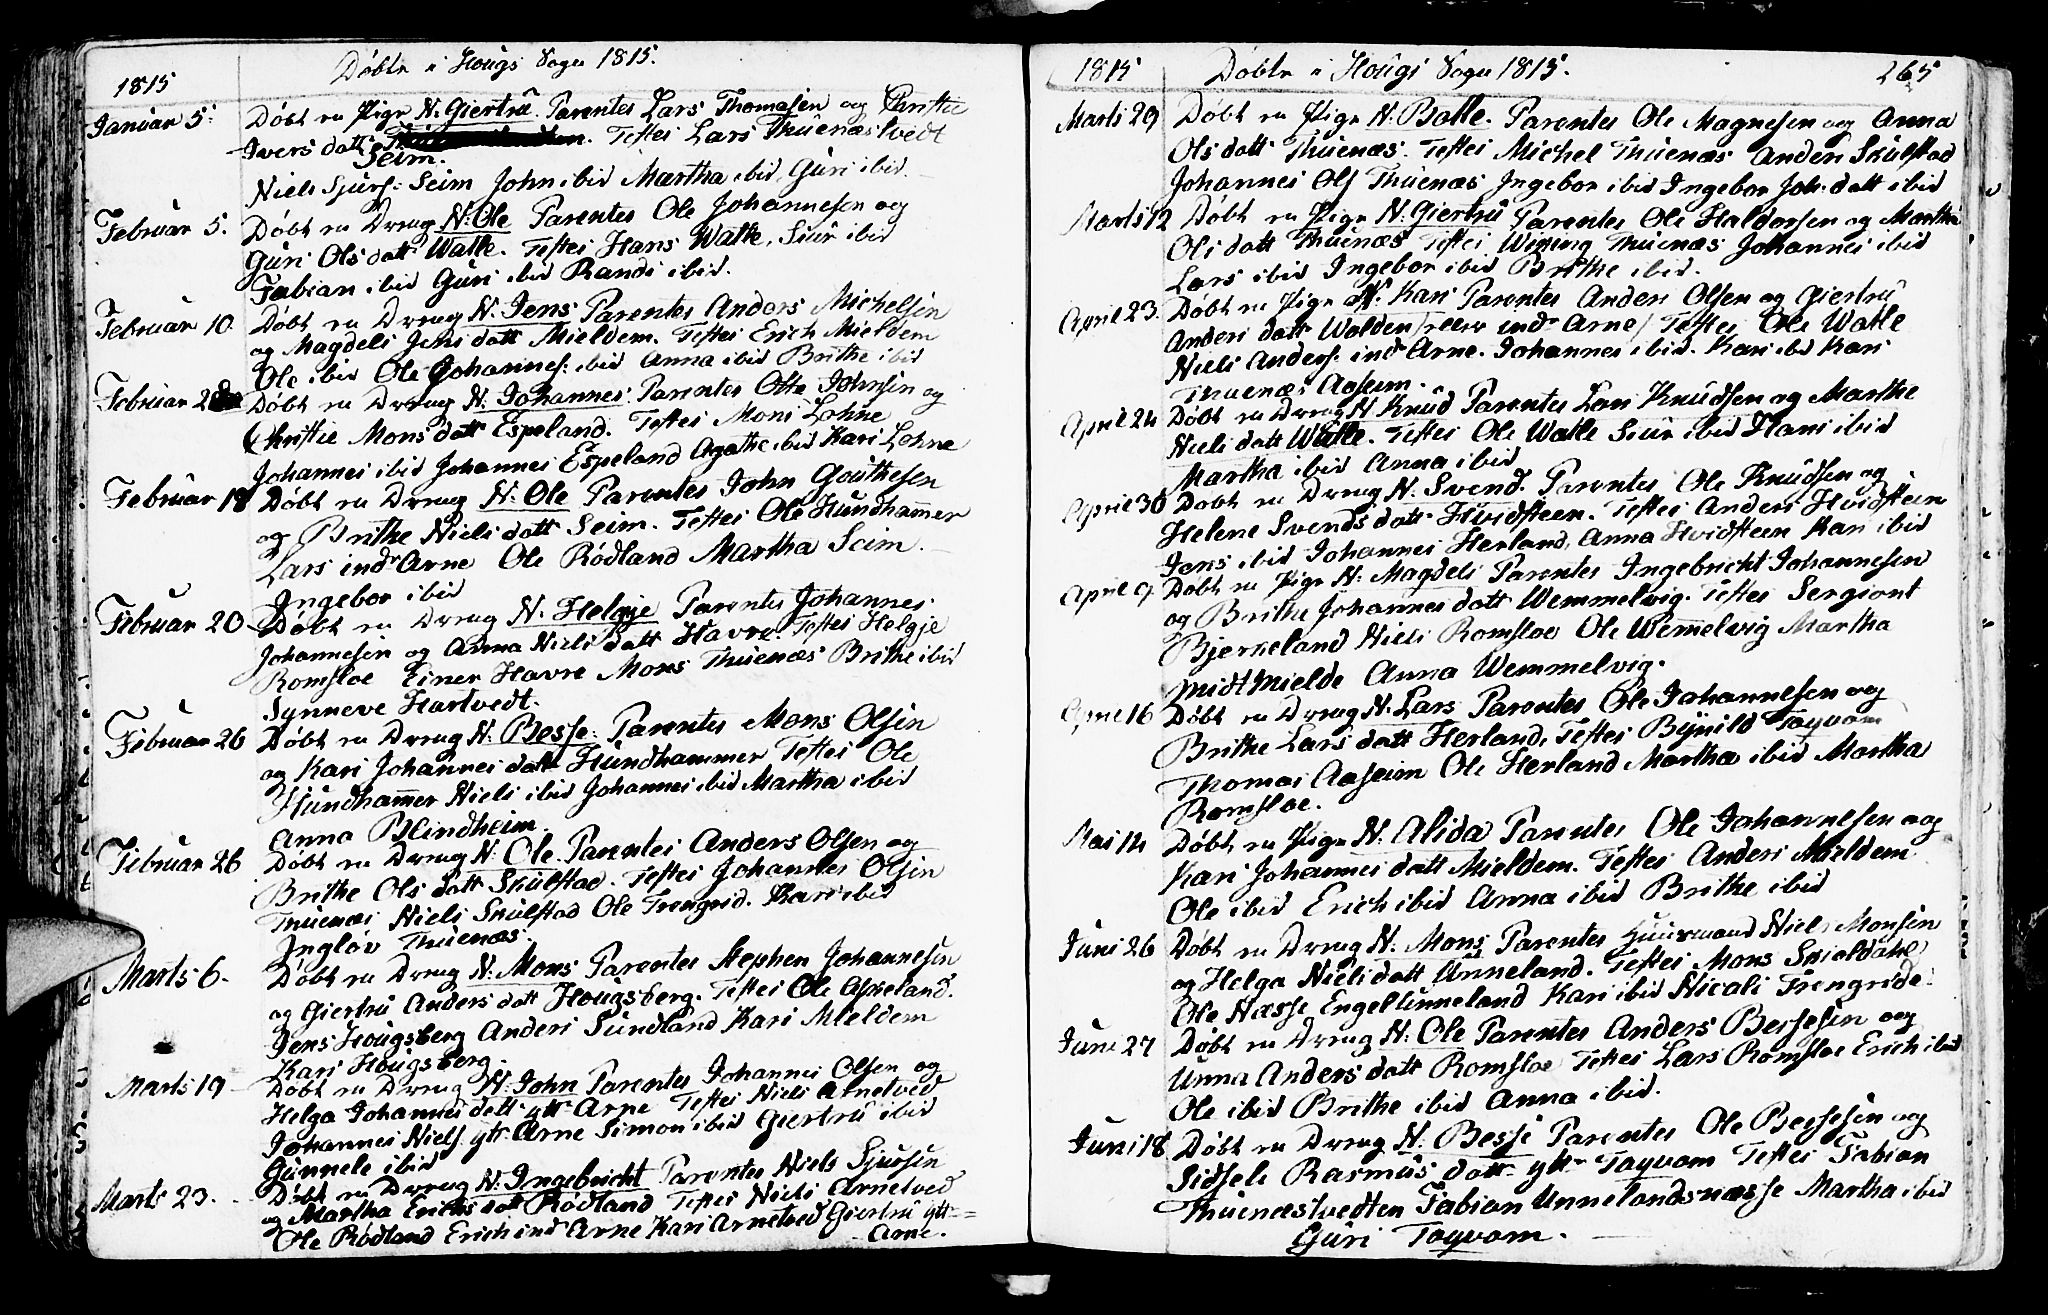 Døbte i Hougs Sogn 1815.
1815
Januar 5. Døbt en Pige N. Giertrü. Parentes Lars Thomasen og Christie
Ivers datt. Testes Lars Thuenæstvedt
Seim.
Niels Sjurs: Seim John ibid Martha ibid, Guri ibid.
Februar 5. Døbt en Dreng N. Ole Parentes Ole Johannesen og
Guri Ols datt Watle. Testes Hans Watle, Siur ibid
Fabian ibid Guri ibid Randi ibid.
Februar 10. Døbt en Dreng N. Jens Parentes Anders Michelsen
og Magdeli Jens datt Mieldem. Testes Erich Mieldem
Ole ibid Ole Johannes: ibid Anna ibid Brithe ibid
Februar Døbt en Dreng N. Johannes. Parentes Otte Johnsen og
Christie Mons datt Espeland. Testes Mons Lohne
Johannes ibid Johannes Espeland Agathe ibid Kari Lohne
Februar 18 Døbt en Dreng N. Ole Parentes John Gouthesen
og Brithe Niels datt Seim. Testes Ole Hundhammer
Lars indr Arne Ole Rødland Martha Seim.
Ingebor ibid
Februar 20 Døbt en Dreng N. Helgje Parentes Johannes
Johannesen og Anna Niels datt Havre. Testes Helgje
Romsloe Einer Havre Mons Thuenæs Brithe ibid
Synneve Hartvedt.
Februar 26 Døbt en Dreng N. Besse. Parentes Mons Olsen
og Kari Johannes datt Hundhammer Testes Ole
Hundhammer Niels ibid Johannes ibid Martha ibid
Anna Blindheim.
Februar 26 Døbt en Dreng N. Ole. Parentes Anders Olsen og
Brithe Ols datt Skulstad. Testes Johannes Olsen
Thuenæs Niels Skulstad Ole Trengrid. Kari ibid
Ingløv Thuenæs.
Marts 6. Døbt en Dreng N. Mons Parentes Stephen Johannesen
og Giertrü Anders datt Hougsberg. Testes Ole Aspeland.
Jens Hougsberg Anders Sundland Kari Mieldem
Kari Hougsberg.
Marts 19 Døbt en Dreng N. John Parentes Johannes Olsen og
Helga Johannes datt ytr Arne Testes Niels Arnetved
Johannes Niels. ytr Arne Simon ibid Giertrü ibid
Gunnele ibid
Marts 23. Døbt en Dreng N. Ingebricht Parentes Niels Sjursen
og Martha Erichs datt Rødland Testes Niels Arnetved
Ole Rødland Erich indr Arne Kari Arnetved Giertrü ytr
Arne.
1815 Døbte i Hougs Sogn 1815. 265
Marts 29 Døbt en Pige N. Botle. Parentes Ole Magnesen og Anna
Ols datt Thuenæs. Testes Michel Thuenæs Anders Skulstad
Johannes Ols Thuenæs Ingebor ibid Ingebor Joh. datt ibid
Marts 12 Døbt en Pige N. Giertrü Parentes Ole Haldorsen og Martha
Ols datt Thuenæs Testes Thuenæs Johannes ibid
Lars ibid Ingebor ibid Brithe ibid.
April 23. Døbt en Pige N. Kari Parentes Anders Olsen og Giertrü
Anders datt Wolden / indr Arne / Testes Ole Watle
Niels Anders. indr Arne. Johannes ibid. Kari ibid Kari
Thuenæs Aaseim.
April 24 Døbt en Dreng N. Knud Parentes Lars Knudsen og Marthe
Niels datt Watle. Testes Ole Watle Siur ibid Hans ibid
Martha ibid Anna ibid
April 30 Døbt en Dreng N. Svend. Parentes Ole Knudsen og
Helene Svends datt Hvidsteen. Testes Anders Hvidsteen
Jens ibid Johannes Herland, Anna Hvidsteen Kari ibid
April 9 Døbt en Pige N. Magdeli Parentes Ingebricht Johannesen
og Brithe Johannes datt Wemmelvig. Testes Sergiant
Bjerkeland Niels Romsloe Ole Wemmelvig Martha
Midtmielde Anna Wemmelvig.
April 16 Døbt en Dreng N. Lars Parentes Ole Johannesen og
Brithe Lars datt Herland. Testes Bynild Toqvam
Thomas Aaseim Ole Herland Martha ibid Martha
Romsloe.
Mai 14 Døbt en Pige N. Alida Parentes Ole Johannesen og
Kari Johannes datt Mieldem. Testes Anders Mieldem
Ole ibid Erich ibid Anna ibid Brithe ibid
Juni 26 Døbt en Dreng N. Mons Parentes Huusmand Niels Monsen
og Helga Niels datt Unneland. Testes Mons Skioldahl
Ole Næsse Engel Unneland Kari ibid Nicoli Trengride.
Juni 27 Døbt en Dreng N. Ole Parentes Anders Bessesen og
Unna Anders datt Romsloe Testes Lars Romsloe Erich ibid
Ole ibid Brithe ibid Anna ibid.
Juni 18 Døbt en Dreng N. Besse Parentes Ole Bessesen og
Sidsele Rasmus datt ytr Toqvam Testes Fabian
Thuenæstvedten Fabian Unnelandsnæsse Martha ibid
Guri Toqvam.